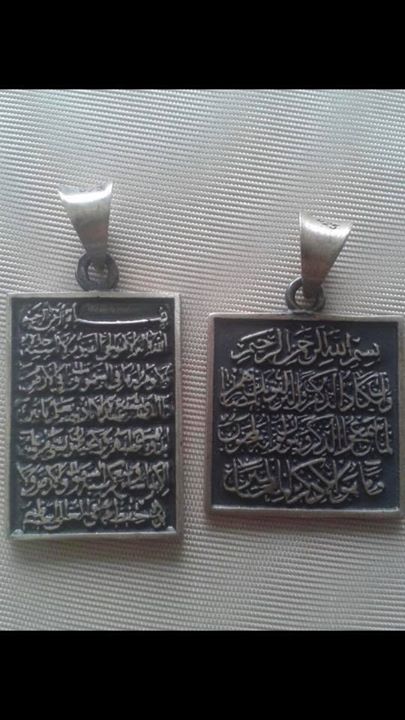 بسم الله الرحمن الرحيم
الله لا اله الا هو الحي القيوم لا تأخذه سنة
ولا نوم له ما في السموات وما في الارض
من ذا الذي يشفع عنده الا باذنه يعلم ما بين
وسع كرسيه السموات والارض ولا
يؤده حفظهما وهو العلي العظيم
بسم الله الرحمن الرحيم
وان يكاد الذين كفروا ليزلقونك بابصارهم
لما سمعوا الذكر ويقولون انه لمجنون
وما هو الا ذكر للعالمين